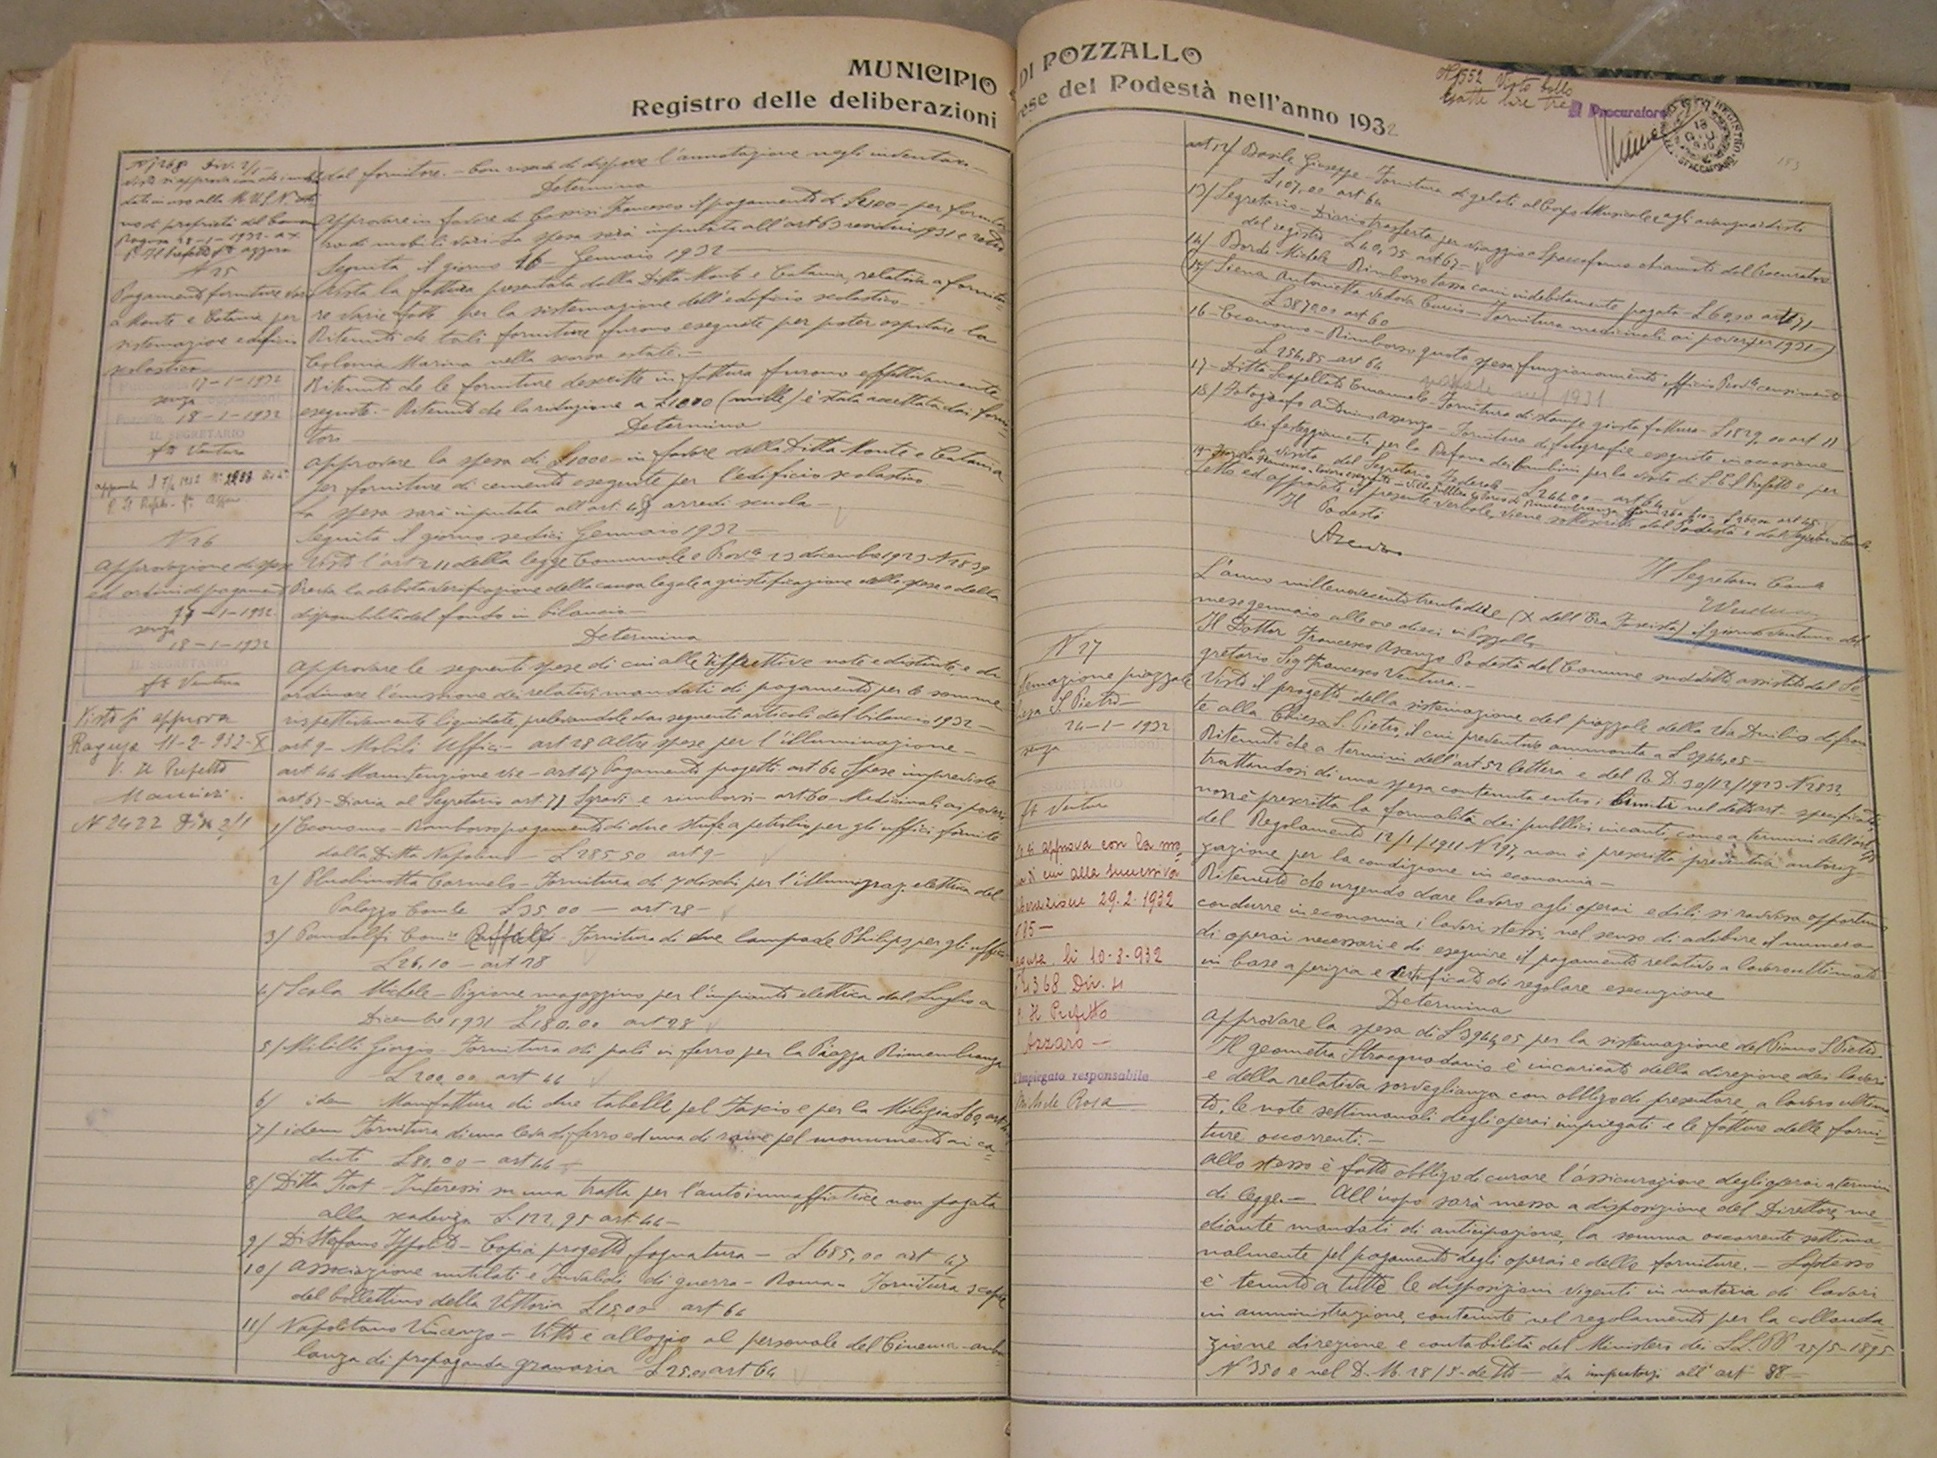 MUNICIPIO DI POZZALLO
Registro delle deliberazioni
ese del Podestà nell'anno 1932
N 7268 Div. 2/1
dal fornitore. - l'annotazione negli inventari
Determina
Approvare in favore di Francesco il pagamento di £ 2100 - per fornitu
ra di mobili vari. La spesa sarà imputata all'art 63 residui 1931 e retro
Seguita, il giorno 16 - Gennaio 1932
N 25
Pagamento forniture varie
a Monte e Catania per
sistemazione edificio
scolastico
17-1-1932
senza
18-1-1932
IL SEGRETARIO
fto Ventura
Vista la fattura presentata dalla Ditta Monte e Catania, relativa a fornitu-
re varie fatte per la sistemazione dell'edificio scolastico -
Ritenuto che tali forniture furono eseguite per poter ospitare la
Colonia Marina nella scorsa estate. -
Ritenuto che le forniture descritte in fattura furono effettivamente
eseguite. - Ritenuto che la riduzione a £ 1000 (mille) è stata accettata dai forni-
tori
Determina
Approvare la spesa di £ 1000 - in favore della Ditta Monte e Catania
per forniture di cemento eseguite per l'edificio scolastico
La spesa sarà imputata all'art 48 arredi scuola -
Seguita il giorno sedici Gennaio 1932 -
N 26
Approvazione di spese
ed ordini di pagamento
17-1-1932
senza
18-1-1932
IL SEGRETARIO
fto Ventura
Visto si approva
Ragusa 11-2-932-X
V. Il Prefetto
Mancieri.
N 2422 Div 2/1
Visto l'art 211 della legge Comunale e Prov.le 23 dicembre 1923 N 2839
Previa la debita verificazione della causa legale a giustificazione delle spese e della
disponibilità del fondo in bilancio -
Determina
Approvare le seguenti spese di cui alle rispettive note e distinte e di
ordinare l'emissione dei relativi mandati di pagamento per le somme
rispettivamente liquidate, prelevandole dai seguenti articoli del bilancio 1932 -
art 9 - Mobili Uffici - art 28 Altre spese per l'illuminazione -
art 44 Manutenzione vie - art 47 Pagamento progetti art 64 Spese impreviste
art 67 - Diaria al Segretario art 71 Sgravi e rimborsi - art 60 - Medicinali ai poveri
1/ Economo - Rimborso pagamento di due stufe a petrolio per gli uffici fornite
dalla Ditta Napolino - £ 285,50 art 9 -
2/ Carmelo - Fornitura di 7 dischi per l'illuminaz. elettrica del
Palazzo Com.le £ 35,00 - art 28 -
3/ Pandolfi Raffaele - Fornitura di due lampade Philips per gli uffici
£ 26,10 - art 28
4/ Scala Michele - Pigione magazzino per l'impianto elettrico dal Luglio a
Dicembre 1931 £ 180,00 art 28
5/ Militti Giorgio - Fornitura di pali in ferro per la Piazza Rimembranza
£ 200,00 art 44
6/ idem Manifattura di due tabelle pel Fascio e per la Milizia £ 60 art
7/ idem Fornitura di una di ferro ed una di rame pel monumento ai ca-
duti £ 80,00 - art 44 -
8/ Ditta Fiat - Interessi su una tratta per l'autoinnaffiatrice non pagata
alla scadenza £ 122,95 art 44 -
9/ Di Stefano Ippolito - Copia progetto fognatura - £ 685,00 art 47
10/ Associazione mutilati e Invalidi di guerra - Roma - Fornitura 3 copie
del bollettino della Vittoria £ 15,00 art 64
11/ Napolitano Vincenzo - Vitto e alloggio al personale del Cinema - ambu
lanza di propaganda granaria £ 25,00 art 64
Il Procuratore
art 12/ Basile Giuseppe - Fornitura di gelati al Corpo Musicale e agli avanguardisti
£ 107,00 art 64
13/ Segretario - Diaria trasferta per viaggio a Spaccaforno chiamato dal Procuratore
del registro £ 40,35 art 67 -
14/ Bordi Michele Rimborso tassa cani indebitamente pagata - £ 60,00 art 71
15/ Siena Antonietta vedova Curcio - Fornitura medicinali ai poveri per 1931 -
£ 3870,00 art 60
16 - Economo - Rimborso quota spesa funzionamento ufficio Prov.le censimento
£ 256,85 art 64
17 - Ditta Scapellato Emanuele - Fornitura di stampe giusta fattura - £ 1829,00 art 11
18/ Fotografo Assenza - Fornitura di fotografie eseguite in occasione
dei festeggiamenti per la Befana dei bambini per la visita di S. E. il Prefetto e per
la visita del Segretario Federale - £ 244,00 - art 64
Letto ed approvato il presente verbale, viene sottoscritto dal Podestà e dal Segretario Comunale
Il Podestà
Il Segretario Com.le
L'anno millenovecentotrentadue (X dell'Era Fascista) il giorno ventuno del
mese gennaio alle ore dieci in Pozzallo
Il Dottor Francesco Azzaro Podestà del Comune suddetto assistito dal Se-
gretario Sig. Francesco Ventura. -
N 27
temazione piazzale
iesa S. Pietro -
24-1-1932
senza
SEGRETARIO
fto Ventura
to si approva con la mo-
a di cui alla successiva
liberazione 29.2.1932
85 -
agusa li 10-3-932
4368 Div. 2
p. Il Prefetto
Azzaro -
L'Impiegato responsabile
Michele Rosa
Visto il progetto della sistemazione del piazzale della Via Duilio di fron
te alla Chiesa S. Pietro, il cui preventivo ammonta a £ 3944,05 -
Ritenuto che a termini dell'art 52 lettera e del R. D. 30/12/1923 N 2839
trattandosi di una spesa contenuta entro i limiti nel detto art. specificati
non è prescritta la formalità dei pubblici incanti, come a termini dell'art
del Regolamento 12/1/1911 N 297, non è prescritta preventiva autoriz-
zazione per la condizione in economia -
Ritenuto che urgendo dare lavoro agli operai edili si ravvisa opportuno
condurre in economia i lavori stessi, nel senso di adibire il numero
di operai necessari e di eseguire il pagamento relativo a lavoro ultimato
in base a perizia e certificato di regolare esecuzione
Determina
Approvare la spesa di £ 3944,05 per la sistemazione del Piano S. Pietro.
Il geometra Stracquadanio è incaricato della direzione dei lavori
e della relativa sorveglianza con obbligo di presentare, a lavoro ultima
to, le note settimanali degli operai impiegati e le fatture delle forni-
ture occorrenti. -
Allo stesso è fatto obbligo di curare l'assicurazione degli operai a termini
di legge. - All'uopo sarà messa a disposizione del Direttore, me-
diante mandati di anticipazione, la somma occorrente settima-
nalmente pel pagamento degli operai e delle forniture. - Lo stesso
è tenuto a tutte le disposizioni vigenti in materia di lavori
in amministrazione, contenute nel regolamento per la collauda-
zione direzione e contabilità del Ministero dei LL. PP 25/5-1895
N 350 e nel D. M. 28/5-detto - Da imputarsi all'art 88 -